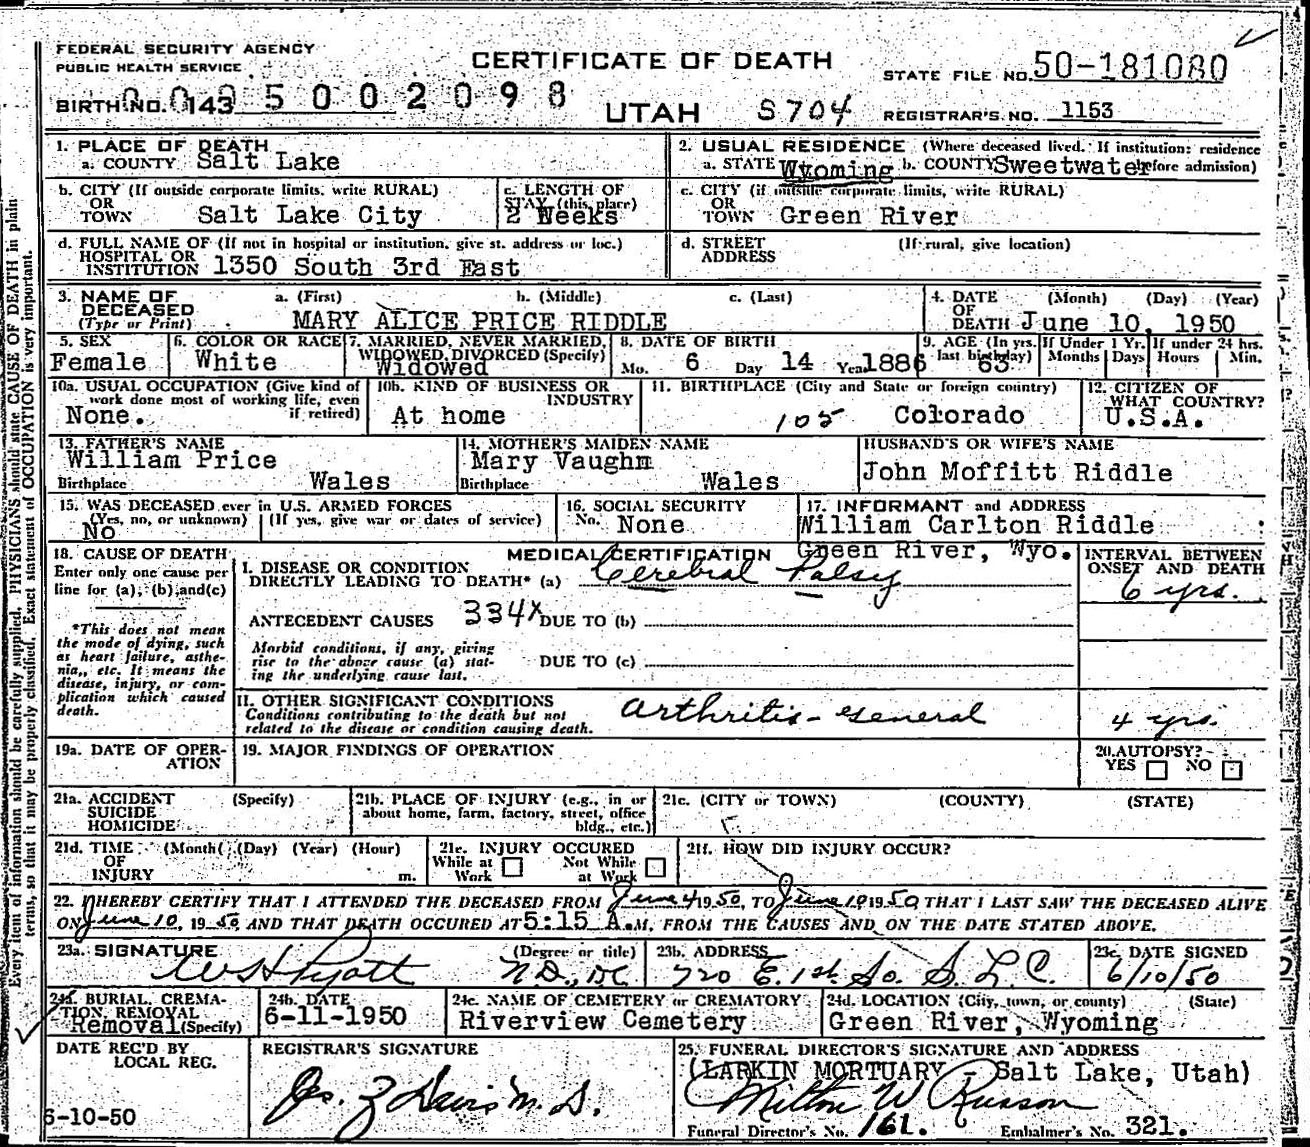 FEDERAL SECURITY AGENCY
PUBLIC HEALTH SERVICE
CERTIFICATE OF DEATH
STATE FILE NO. 50-181080
BIRTH NO. 143 5002098
UTAH S704
REGISTRAR'S NO. 1153
1. PLACE OF DEATH
a. COUNTY Salt Lake
2. USUAL RESIDENCE (Where deceased lived. If institution: residence before admission)
a. STATE Wyoming b. COUNTY Sweetwater
b. CITY (If outside corporate limits, write RURAL)
OR
TOWN Salt Lake City
c. LENGTH OF
STAY (this place)
2 Weeks
c. CITY (if outside corporate limits, write RURAL)
OR
TOWN Green River
d. FULL NAME OF (If not in hospital or institution, give st. address or loc.)
HOSPITAL OR
INSTITUTION 1350 South 3rd East
d. STREET (If rural, give location)
ADDRESS
3. NAME OF a. (First) b. (Middle) c. (Last)
DECEASED
(Type or Print) MARY ALICE PRICE RIDDLE
4. DATE (Month) (Day) (Year)
OF
DEATH June 10, 1950
5. SEX
Female
6. COLOR OR RACE
White
7. MARRIED, NEVER MARRIED,
WIDOWED, DIVORCED (Specify)
Widowed
8. DATE OF BIRTH
Mo. 6 Day 14 Year 1886
9. AGE (In yrs. last birthday) 63
If Under 1 Yr. Months Days
If under 24 hrs. Hours Min.
10a. USUAL OCCUPATION (Give kind of
work done most of working life, even
if retired)
None.
10b. KIND OF BUSINESS OR
INDUSTRY
At home
11. BIRTHPLACE (City and State or foreign country)
105 Colorado
12. CITIZEN OF
WHAT COUNTRY?
U.S.A.
13. FATHER'S NAME
William Price
Birthplace Wales
14. MOTHER'S MAIDEN NAME
Mary Vaughn
Birthplace Wales
HUSBAND'S OR WIFE'S NAME
John Moffitt Riddle
15. WAS DECEASED ever in U.S. ARMED FORCES
(Yes, no, or unknown) (If yes, give war or dates of service)
No
16. SOCIAL SECURITY
No. None
17. INFORMANT and ADDRESS
William Carlton Riddle
Green River, Wyo.
18. CAUSE OF DEATH
Enter only one cause per
line for (a), (b), and (c)
*This does not mean
the mode of dying, such
as heart failure, asthe-
nia, etc. It means the
disease, injury, or com-
plication which caused
death.
MEDICAL CERTIFICATION
I. DISEASE OR CONDITION
DIRECTLY LEADING TO DEATH* (a) Cerebral Palsy
INTERVAL BETWEEN
ONSET AND DEATH
6 yrs.
ANTECEDENT CAUSES 334X DUE TO (b)
Morbid conditions, if any, giving
rise to the above cause (a) stat-
ing the underlying cause last.
DUE TO (c)
II. OTHER SIGNIFICANT CONDITIONS
Conditions contributing to the death but not
related to the disease or condition causing death.
Arthritis - General
4 yrs.
19a. DATE OF OPER-
ATION
19. MAJOR FINDINGS OF OPERATION
20. AUTOPSY?
YES NO
21a. ACCIDENT (Specify)
SUICIDE
HOMICIDE
21b. PLACE OF INJURY (e.g., in or
about home, farm, factory, street, office
bldg., etc.)
21c. (CITY or TOWN) (COUNTY) (STATE)
21d. TIME (Month) (Day) (Year) (Hour)
OF
INJURY m.
21e. INJURY OCCURED
While at Work Not While at Work
21f. HOW DID INJURY OCCUR?
22. I HEREBY CERTIFY THAT I ATTENDED THE DECEASED FROM June 4 1950, TO June 10 1950 THAT I LAST SAW THE DECEASED ALIVE
ON June 10, 1950 AND THAT DEATH OCCURED AT 5:15 A.M, FROM THE CAUSES AND ON THE DATE STATED ABOVE.
23a. SIGNATURE (Degree or title)
W S H Pyott N.D., D.C.
23b. ADDRESS
720 E. 1st So. S.L.C.
23c. DATE SIGNED
6/10/50
24a. BURIAL, CREMA-
TION, REMOVAL
Removal (Specify)
24b. DATE
6-11-1950
24c. NAME OF CEMETERY or CREMATORY
Riverview Cemetery
24d. LOCATION (City, town, or county) (State)
Green River, Wyoming
DATE REC'D BY
LOCAL REG.
6-10-50
REGISTRAR'S SIGNATURE
Jos. Z Davis M.D.
25. FUNERAL DIRECTOR'S SIGNATURE AND ADDRESS
(LARKIN MORTUARY - Salt Lake, Utah)
Milton W Russon
Funeral Director's No. 161. Embalmer's No. 321.
Every item of information should be carefully supplied. PHYSICIANS should state CAUSE OF DEATH in plain
terms, so that it may be properly classified. Exact statement of OCCUPATION is very important.